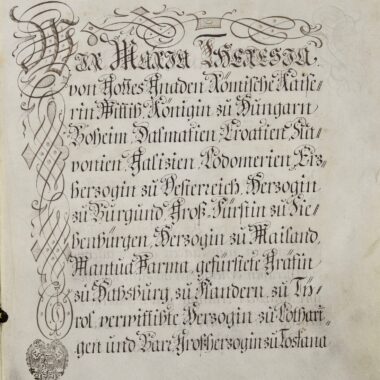 Wir Maria Theresia,
von Gottes Gnaden Römische Kaise⸗
rin Wittib, Königin zu Hungarn
Boheim, Dalmatien, Croatien, Sla⸗
vonien, Galizien, Lodomerien, Erz⸗
herzogin zu Oesterreich, Herzogin
zu Burgund, Groß⸗Fürstin zu Sie⸗
benbürgen, Herzogin zu Mailand,
Mantua Parma, gefürstete Gräfin
zu Habsburg, zu Flandern, zu Ty⸗
rol, verwittibte Herzogin zu Lothari⸗
gen und Barr, Großherzogin zu Toskana